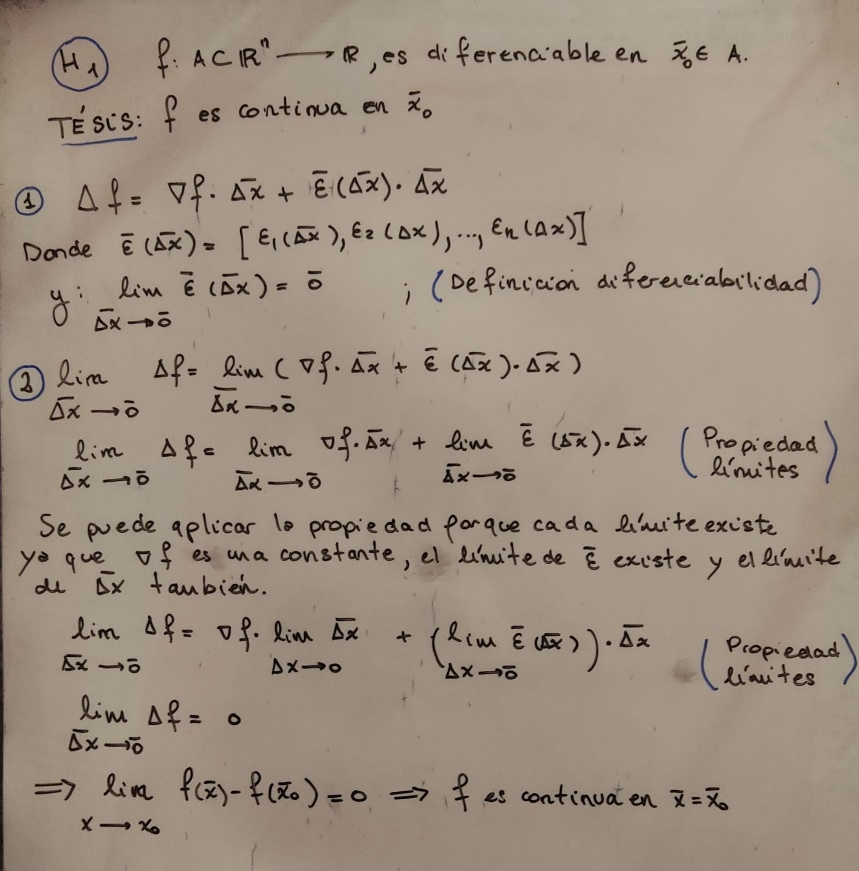 H1 f: A⊂ℝⁿ → ℝ, es diferenciable en x̄₀ ∈ A.
TÉSIS: f es continua en x̄₀
① Δf = ∇f · Δ̅x̅ + ε̄(Δ̅x̅) · Δ̅x̅
Donde ε̄(Δ̅x̅) = [ε₁(Δ̅x̅), ε₂(Δx), ..., εn(Δx)]
y: lim ε̄(Δ̅x̅) = ō ; (Definición diferenciabilidad)
Δ̅x̅ → ō
② lim Δf = lim (∇f · Δ̅x̅ + ε̄(Δ̅x̅) · Δ̅x̅)
Δ̅x̅ → ō Δ̅x̅ → ō
lim Δf = lim ∇f · Δ̅x̅ + lim ε̄(Δ̅x̅) · Δ̅x̅ (Propiedad
Δ̅x̅ → ō Δ̅x̅ → ō Δ̅x̅ → ō límites)
Se puede aplicar la propiedad porque cada límite existe
ya que ∇f es una constante, el límite de ε̄ existe y el límite
de Δ̅x̅ también.
lim Δf = ∇f · lim Δ̅x̅ + (lim ε̄(Δ̅x̅)) · Δ̅x̅ (Propiedad
Δ̅x̅ → ō Δx → 0 Δx → ō límites)
lim Δf = 0
Δ̅x̅ → ō
⇒ lim f(x̄) - f(x̄₀) = 0 ⇒ f es continua en x̄ = x̄₀
x → x₀